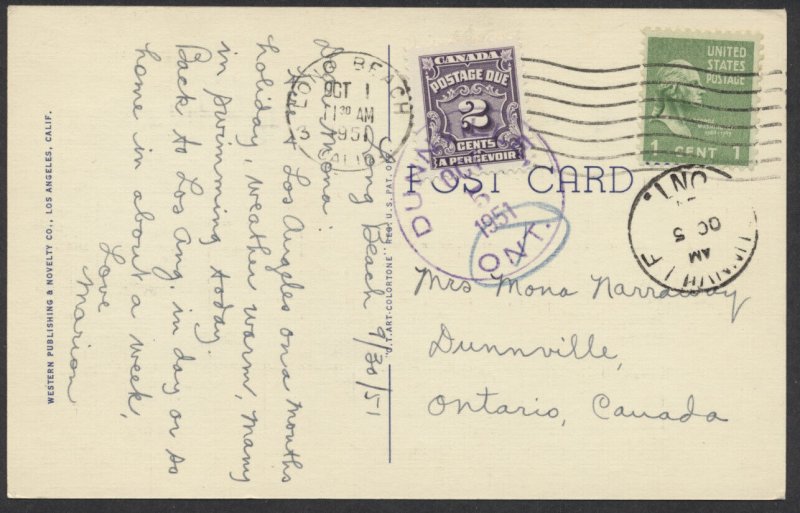 WESTERN PUBLISHING & NOVELTY CO., LOS ANGELES, CALIF.
Long Beach 9/30/51
dear Mona:
Los Angeles on a months
holiday, weather warm, many
in swimming today.
Back to Los Ang. in day or so
home in about a week,
Love
Marion
"C.T. ART-COLORTONE" REG. U.S. PAT. OFF.
LONG BEACH
OCT 1
11 30 AM
1951
CALIF
CANADA
POSTAGE DUE
2
CENTS
A PERCEVOIR
UNITED
STATES
POSTAGE
1 CENT 1
POST CARD
DUNN
OC
1951
ONT.
T
ONT.
OC 5
AM
Mrs Mona Narraway
Dunnville,
Ontario, Canada